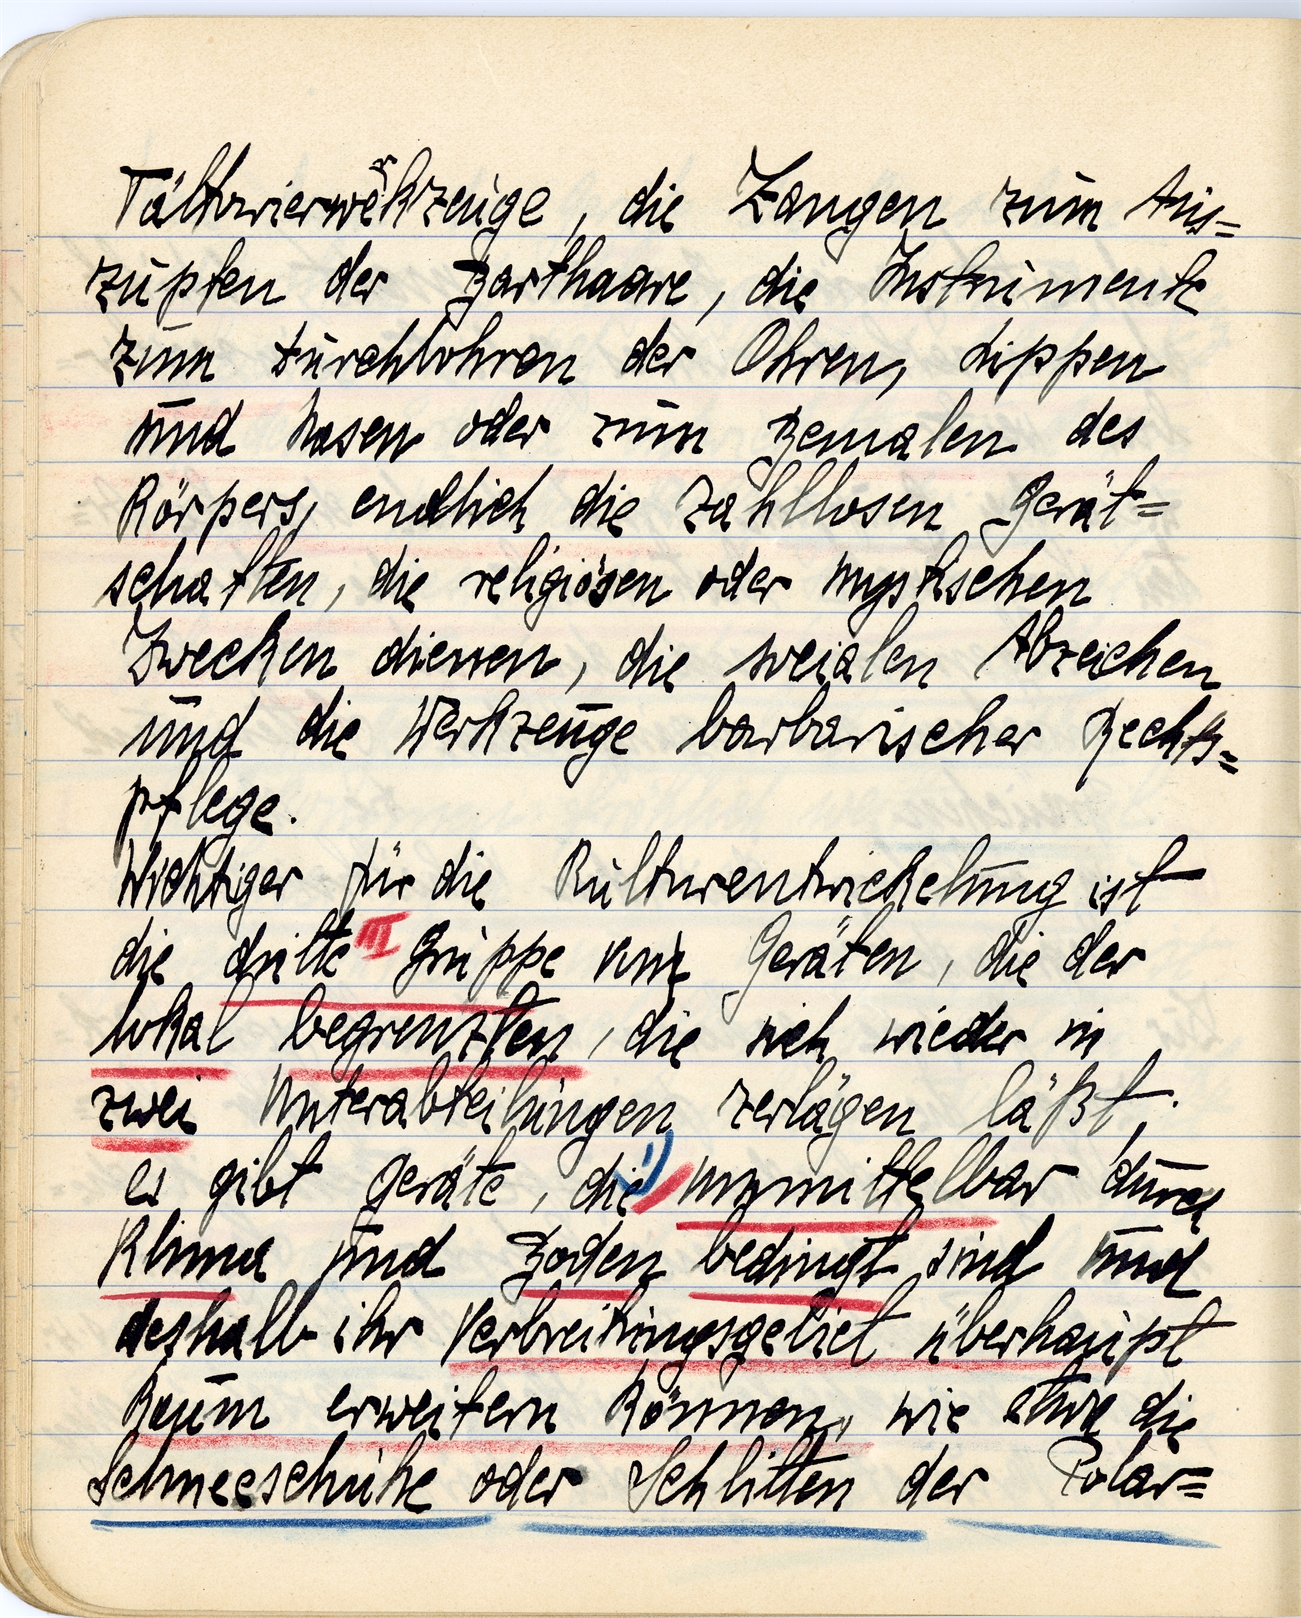 Tättowierwerkzeuge, die Zangen zum Aus=
zupfen der Barthaare, die Instrumente
zum Durchbohren der Ohren, Lippen
und Nasen oder zum Bemalen des
Körpers, endlich die zahllosen Gerät=
schaften, die religiösen oder mystischen
Zwecken dienen, die sozialen Abzeichen
und die Werkzeuge barbarischer Rechts=
pflege.
Wichtiger für die Kulturentwickelung ist
die dritte III Gruppe von Geräten, die der
lokal begrenzten, die sich wieder in
zwei Unterabteilungen zerlägen läßt;
es gibt Geräte, die 1) unmittelbar durch
Klima und Boden bedingt sind und
deshalb ihr Verbreitungsgebiet überhaupt
kaum erweitern können, wie etwa die
Schneeschuhe oder Schlitten der Polar=